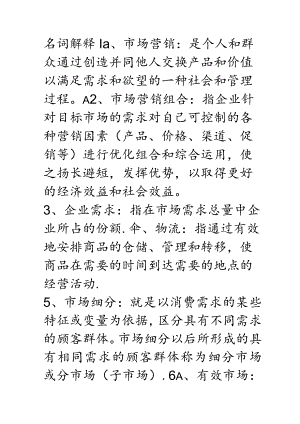 名词解释Ia、市场营销：是个人和群
众通过创造并同他人交换产品和价值
以满足需求和欲望的一种社会和管理
过程。A2、市场营销组合：指企业针
对目标市场的需求对自己可控制的各
种营销因素（产品、价格、渠道、促
销等）进行优化组合和综合运用，使
之扬长避短，发挥优势，以取得更好
的经济效益和社会效益。
3、企业需求：指在市场需求总量中企
业所占的份额.伞、物流：指通过有效
地安排商品的仓储、管理和转移，使
商品在需要的时间到达需要的地点的
经营活动.
5、市场细分：就是以消费需求的某些
特征或变量为依据，区分具有不同需求
的顾客群体。市场细分以后所形成的具
有相同需求的顾客群体称为细分市场
或分市场（子市场）.6A、有效市场：